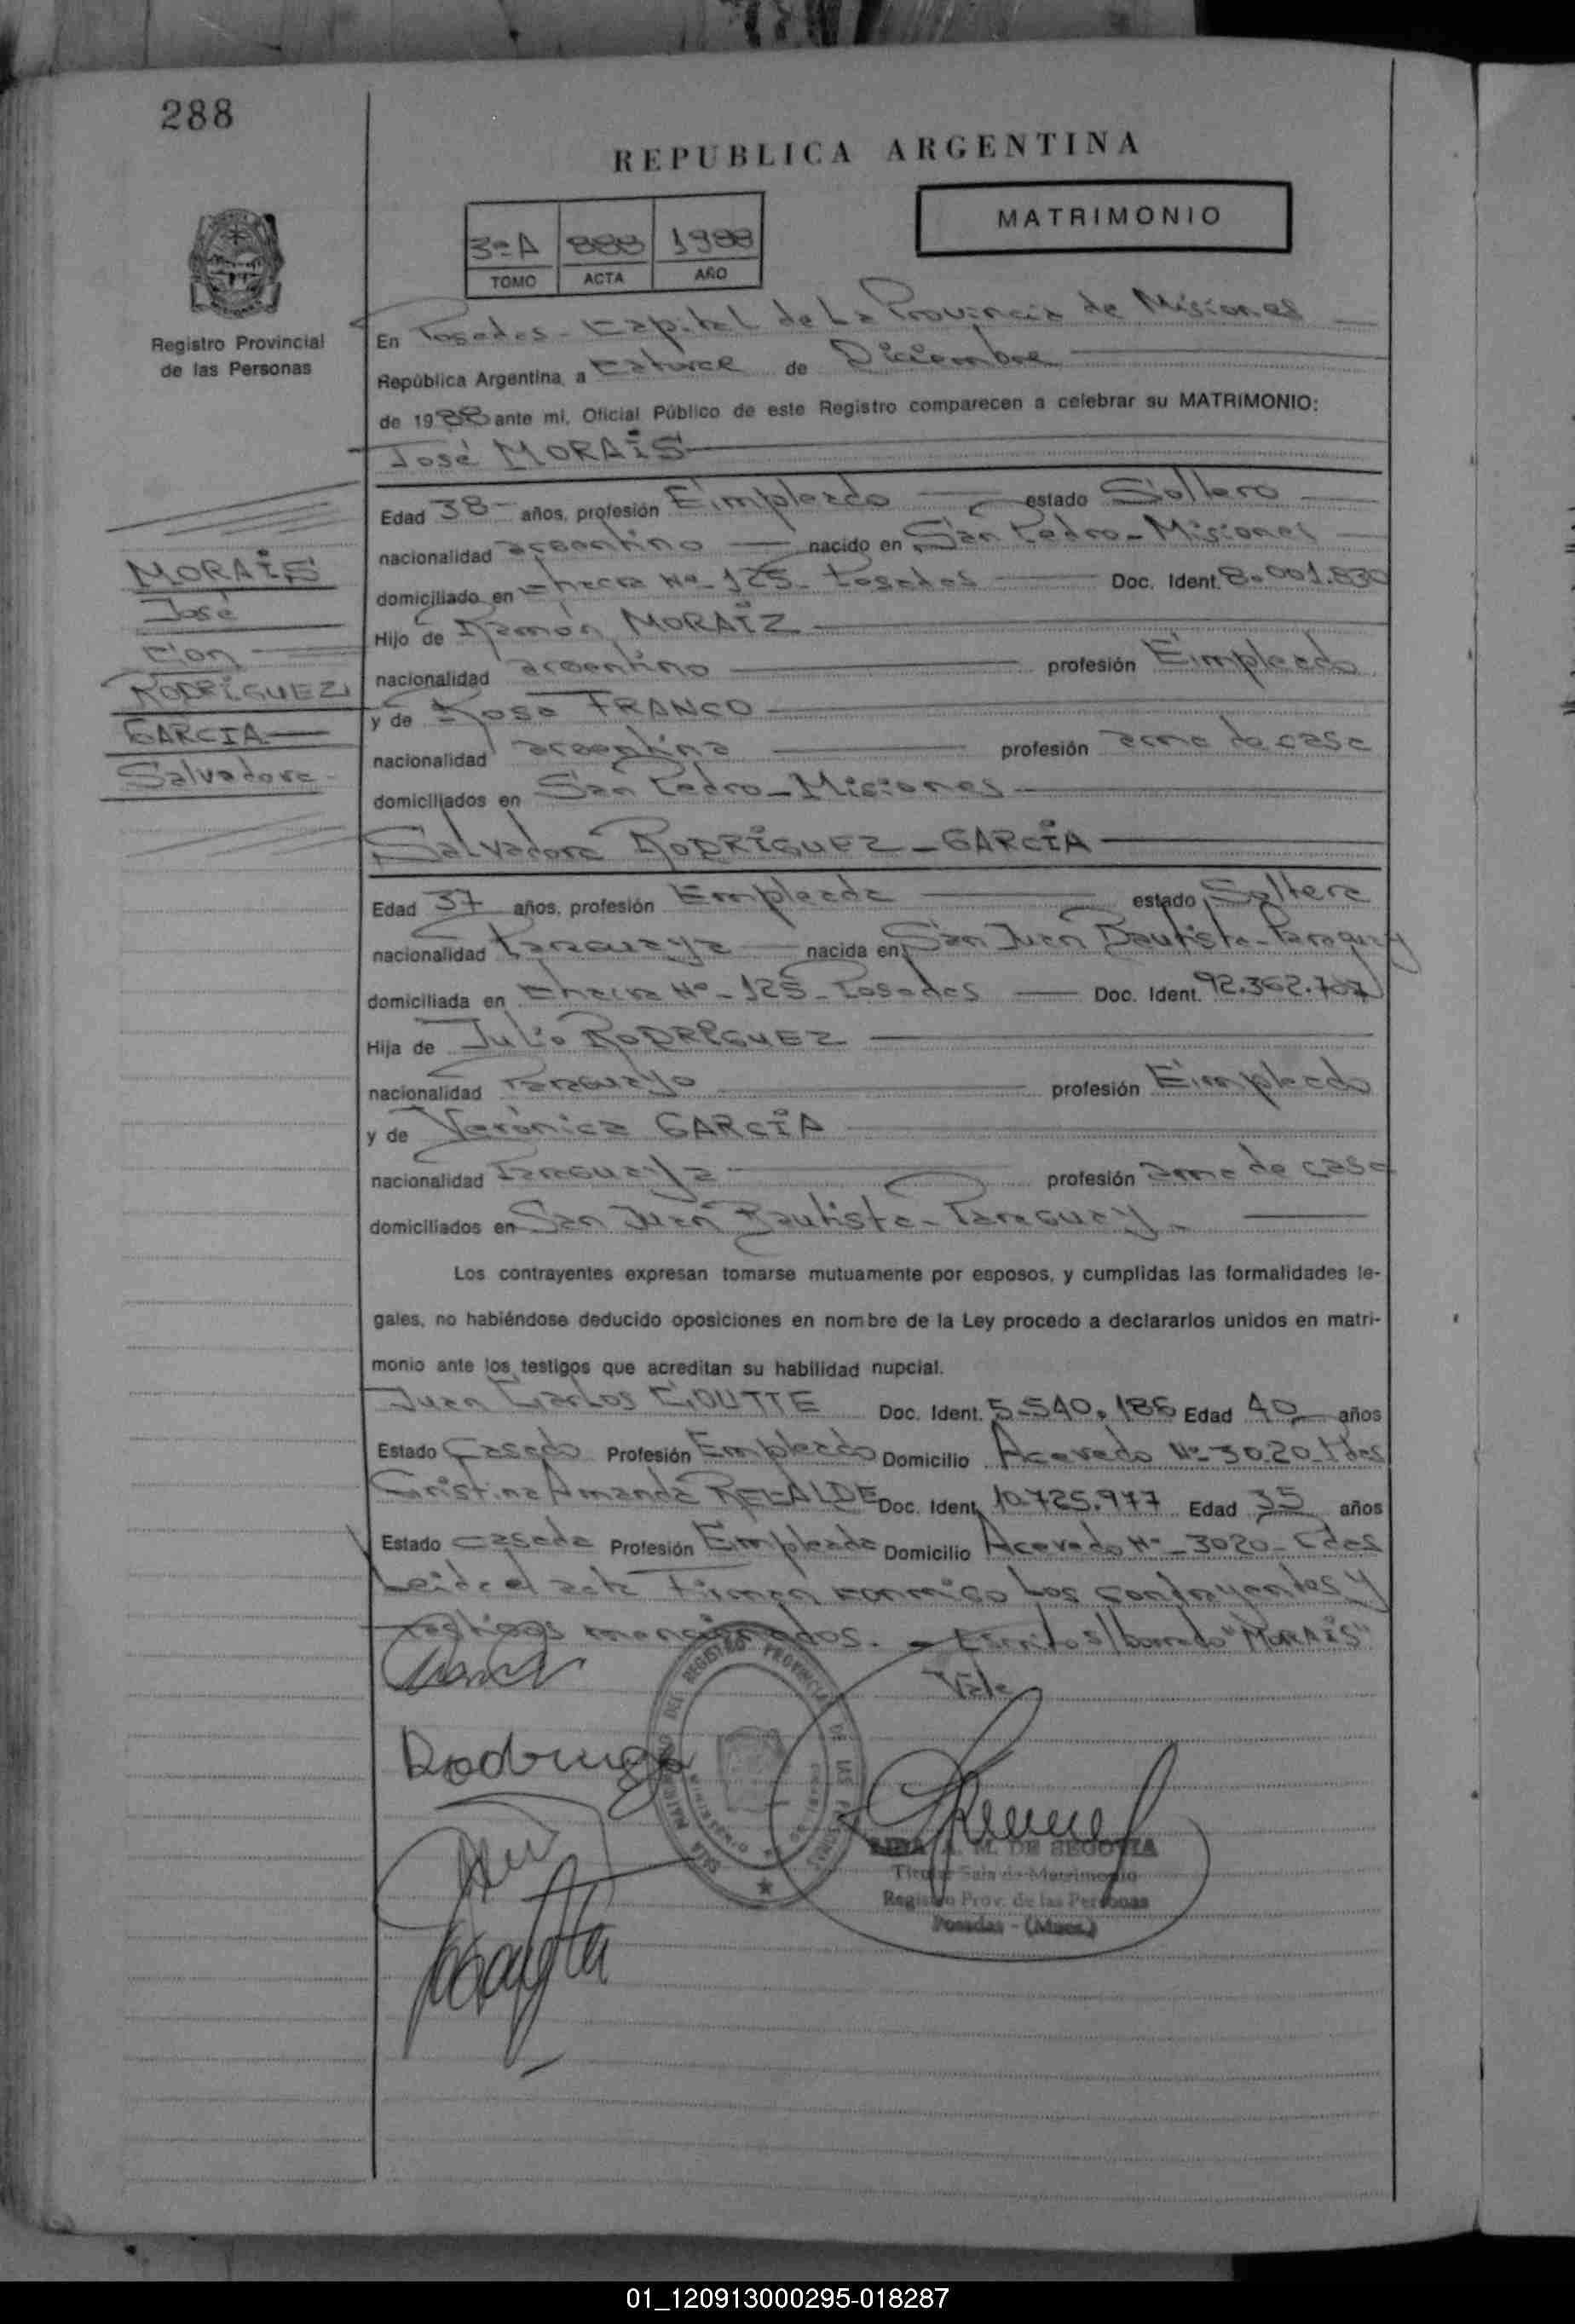 288
REPUBLICA ARGENTINA
MATRIMONIO
3ºA 888 1988
TOMO ACTA AÑO
Registro Provincial
de las Personas
En Posadas - Capital de La Provincia de Misiones
República Argentina, a Catorce de Diciembre
de 1988 ante mi, Oficial Público de este Registro comparecen a celebrar su MATRIMONIO:
José MORAIS
Edad 38 años, profesión Empleado estado Soltero
nacionalidad argentino nacido en San Pedro - Misiones
domiciliado en Chacra Nº - 125 - Posadas Doc. Ident. 8.001.830
Hijo de Ramón MORAIZ
nacionalidad argentino profesión Empleado
y de Rosa FRANCO
nacionalidad argentina profesión ama de casa
domiciliados en San Pedro - Misiones
MORAIS
José
con
RODRIGUEZ
GARCIA
Salvadora
Salvadora RODRIGUEZ - GARCIA
Edad 37 años, profesión Empleada estado Soltera
nacionalidad Paraguaya nacida en San Juan Bautista - Paraguay
domiciliada en Chacra Nº - 125 - Posadas Doc. Ident. 92.362.707
Hija de Julio RODRIGUEZ
nacionalidad Paraguayo profesión Empleado
y de Verónica GARCIA
nacionalidad Paraguaya profesión ama de casa
domiciliados en San Juan Bautista - Paraguay -
Los contrayentes expresan tomarse mutuamente por esposos, y cumplidas las formalidades le-
gales, no habiéndose deducido oposiciones en nombre de la Ley procedo a declararlos unidos en matri-
monio ante los testigos que acreditan su habilidad nupcial.
Juan Carlos Doc. Ident. 5.540.186 Edad 40 años
Estado Casado Profesión Empleado Domicilio Acevedo Nº - 3020 - Pdas
Cristina Amanda Doc. Ident. 10.725.977 Edad 35 años
Estado casada Profesión Empleada Domicilio Acevedo Nº - 3020 - Pdas
Leida el acta firman conmigo Los contrayentes y
testigos mencionados. - Escrito s/borrado "MORAIS"
Vale
SALA MATRIMONIO DEL REGISTRO PROVINCIAL DE LAS PERSONAS
A. M. DE SEGOVIA
Titular Sala de Matrimonio
Registro Prov. de las Personas
Posadas - (Mnes.)
01_120913000295-018287